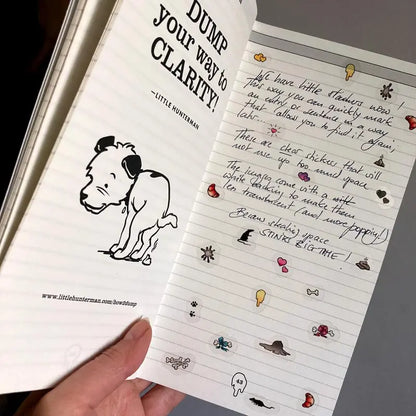 DUMP
your way to
CLARITY!
—LITTLE HUNTERMAN
www.littlehunterman.com/howtodump
We have little stickers now!
This way you can quickly mark
an entry or sentence in a way
that allows you to find it again,
later.
These are clear stickers that will
not use up too much space
The images come with a
white backing to make them
less translucent (and more poppin!)
Because stickin' space
STINKS BIG TIME!
43